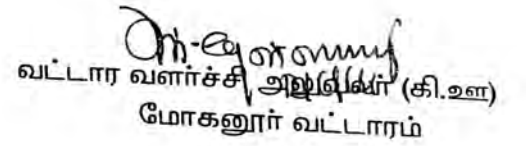 வட்டார வளர்ச்சி அலுவலர் (கி.ஊ)
மோகனூர் வட்டாரம்